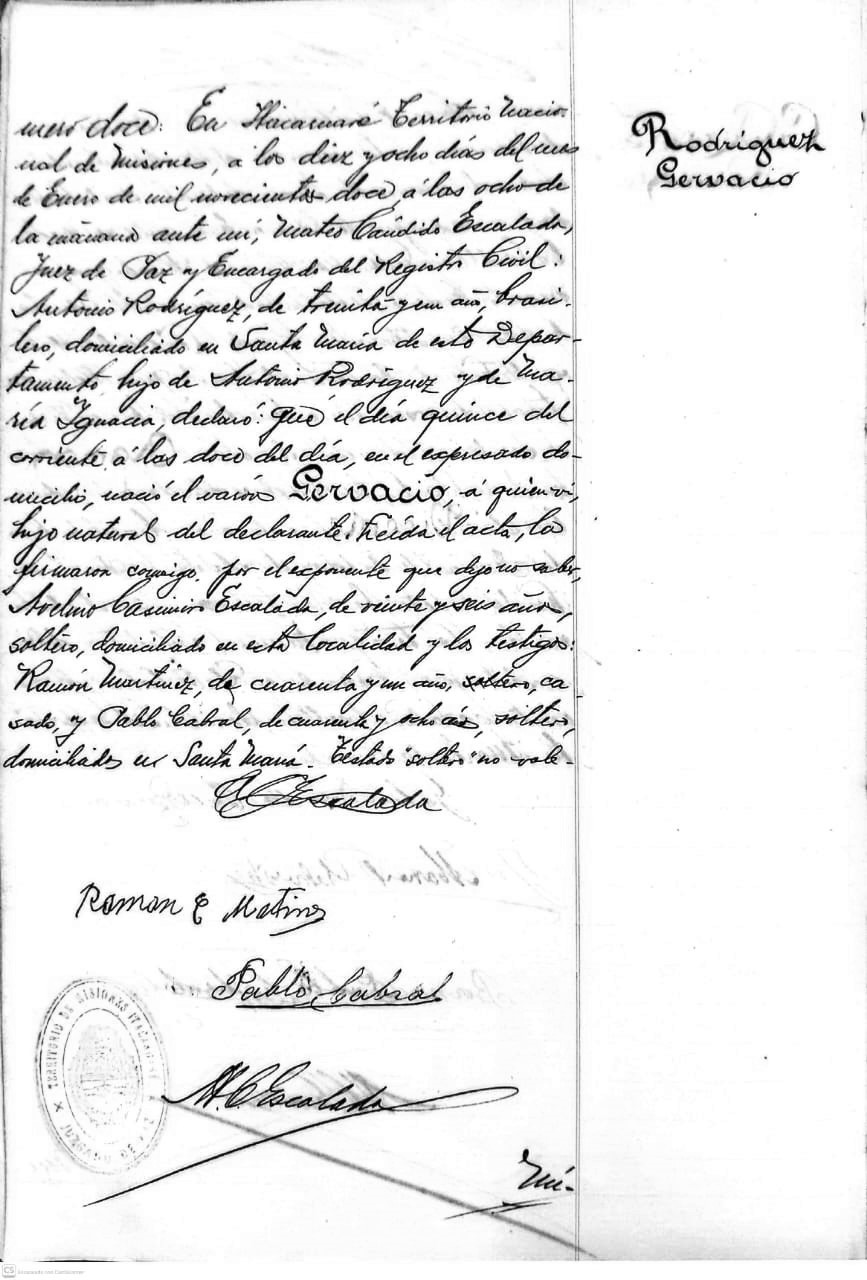 mero doce: En Itacaruaré Territorio Nacio-
nal de Misiones, a los diez y ocho días del mes
de Enero de mil novecientos doce, á las ocho de
la mañana ante mí, Mateo Cándido Escalada,
Juez de Paz y Encargado del Registro Civil:
Antonio Rodríguez, de treinta y un año, brasi-
lero, domiciliado en Santa María de este Depar-
tamento, hijo de Antonio Rodríguez y de Ma-
ría Ignacia, declaró: Que el día quince del
corriente á las doce del día, en el expresado do-
micilio, nació el varón Gervacio, á quien vi,
hijo natural del declarante. Leída el acta, la
firmaron conmigo, por el exponente que dijo no saber,
Avelino Casimiro Escalada, de veinte y seis años,
soltero, domiciliado en esta localidad y los testigos:
Ramón Martínez, de cuarenta y un año, soltero, ca-
sado, y Pablo Cabral, de cuarenta y ocho años, soltero,
domiciliados en Santa María. Testado "soltero" no vale-
Rodríguez
Gervacio
A C Escalada
Ramon E Metines
Pablo Cabral
M. C. Escalada
TERRITORIO DE MISIONES
JUZGADO DE
Nú-
CS Escaneado con CamScanner